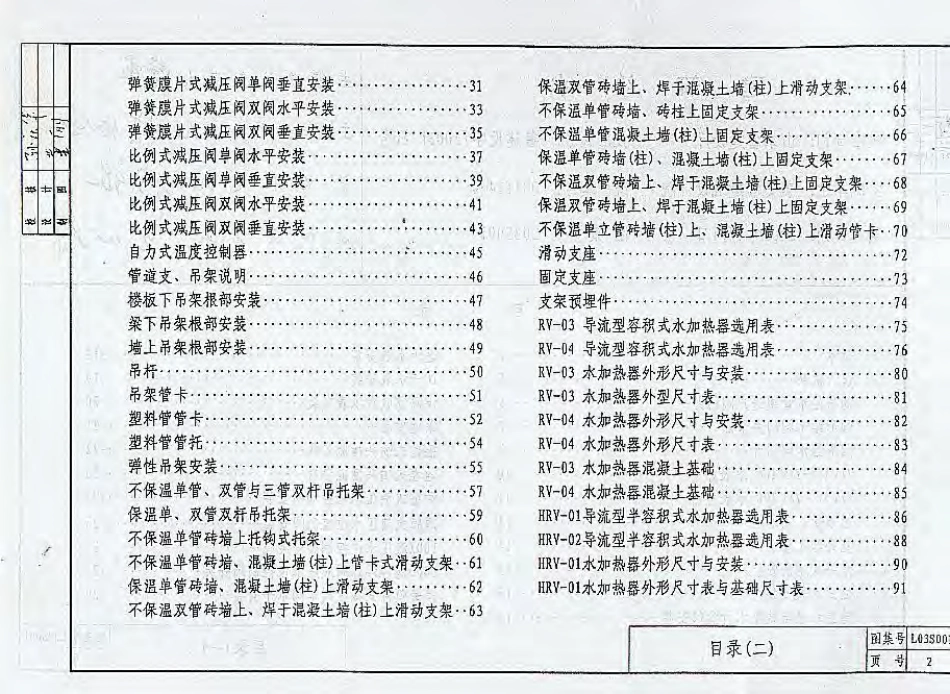 弹簧膜片式减压阀单阀垂直安装 31
弹簧膜片式减压阀双阀水平安装 33
弹簧膜片式减压阀双阀垂直安装 35
比例式减压阀单阀水平安装 37
比例式减压阀单阀垂直安装 39
比例式减压阀双阀水平安装 41
比例式减压阀双阀垂直安装 43
自力式温度控制器 45
管道支、吊架说明 46
楼板下吊架根部安装 47
梁下吊架根部安装 48
墙上吊架根部安装 49
吊杆 50
吊架管卡 51
塑料管管卡 52
塑料管管托 54
弹性吊架安装 55
不保温单管、双管与三管双杆吊托架 57
保温单、双管双杆吊托架 59
不保温单管砖墙上托钩式托架 60
不保温单管砖墙、混凝土墙(柱)上管卡式滑动支架 61
保温单管砖墙、混凝土墙(柱)上滑动支架 62
不保温双管砖墙上、焊于混凝土墙(柱)上滑动支架 63
保温双管砖墙上、焊于混凝土墙(柱)上滑动支架 64
不保温单管砖墙、砖柱上固定支架 65
不保温单管混凝土墙(柱)上固定支架 66
保温单管砖墙(柱)、混凝土墙(柱)上固定支架 67
不保温双管砖墙上、焊于混凝土墙(柱)上固定支架 68
保温双管砖墙上、焊于混凝土墙(柱)上固定支架 69
不保温单立管砖墙(柱)上、混凝土墙(柱)上滑动管卡 70
滑动支座 72
固定支座 73
支架预埋件 74
RV-03 导流型容积式水加热器选用表 75
RV-04 导流型容积式水加热器选用表 76
RV-03 水加热器外形尺寸与安装 80
RV-03 水加热器外型尺寸表 81
RV-04 水加热器外形尺寸与安装 82
RV-04 水加热器外形尺寸表 83
RV-03 水加热器混凝土基础 84
RV-04 水加热器混凝土基础 85
HRV-01导流型半容积式水加热器选用表 86
HRV-02导流型半容积式水加热器选用表 88
HRV-01水加热器外形尺寸与安装 90
HRV-01水加热器外形尺寸表与基础尺寸表 91
目录(二)
图集号 L03S001
页 号 2